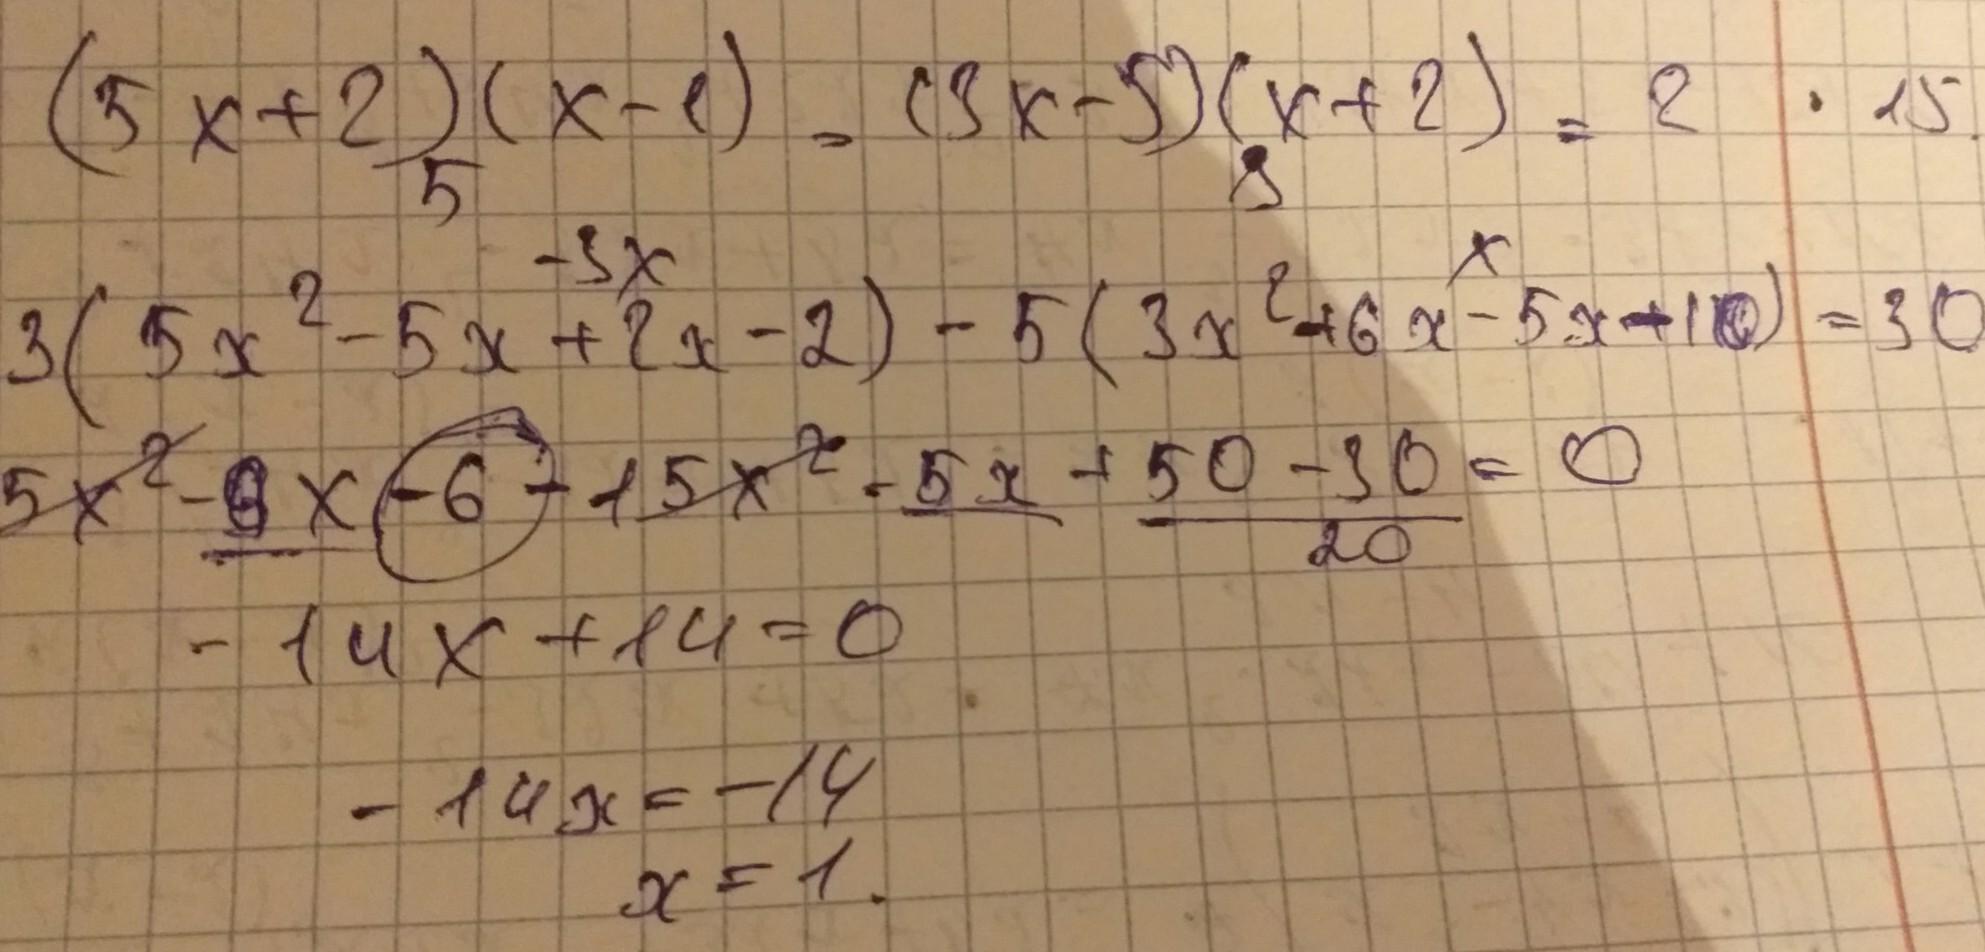 (5x+2)(x-1) - (3x-5)(x+2) = 2 · 15
5 3
-3x x
3(5x²-5x+2x-2) - 5(3x²+6x-5x-10) = 30
5x²-9x-6-15x²-5x+50-30=0
20
-14x+14=0
-14x=-14
x=1.